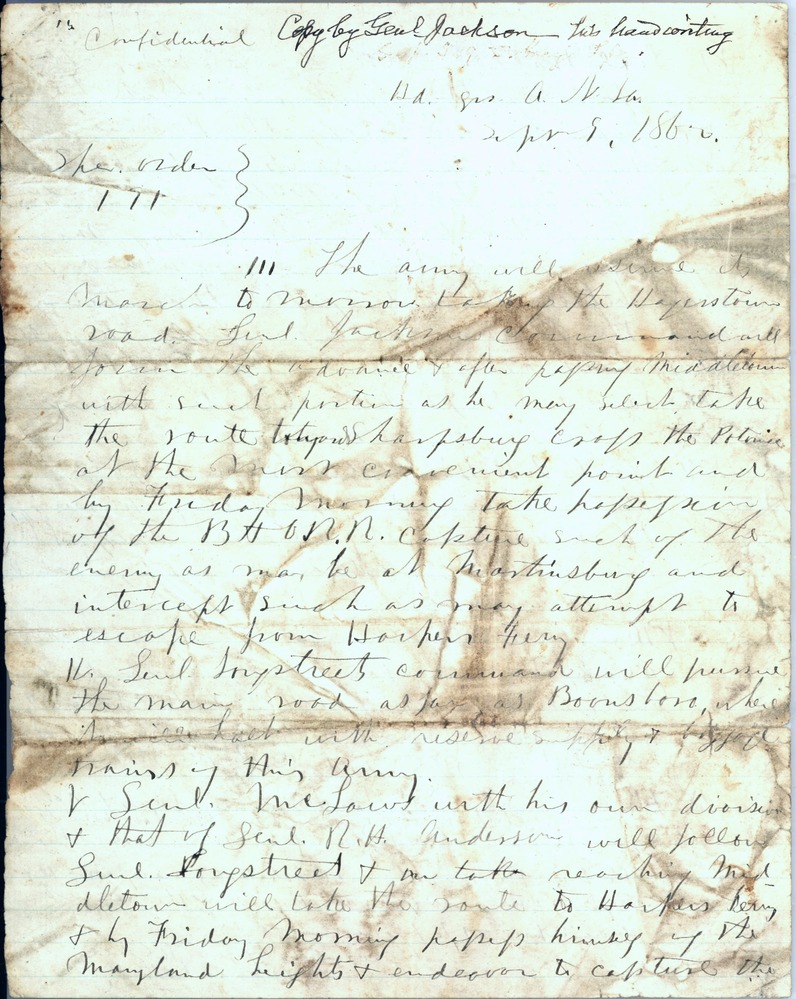 Confidential Copy by Genl Jackson his handwriting
Hd. qrs A. N. Va.
Sept 9, 1862.
Spe. order
191
III The army will resume its
march to morrow taking the Hagerstown
road. Genl. Jackson command will
form the advance & after passing Middletown
with such portion as he may select take
the route towards Sharpsburg cross the Potomac
at the most convenient point and
by Friday Morning take possession
of the B & O R. R. capture such of the
enemy as may be at Martinsburg and
intercept such as may attempt to
escape from Harpers Ferry
IV. Genl. Longstreets command will pursue
the main road as far as Boonsboro, where
it will halt with reserve supply & baggage
trains of this Army.
V Genl. McLaws with his own division
& that of Genl. R. H. Anderson will follow
Genl. Longstreet & on reaching Mid
dletown will take the route to Harpers Ferry
& by Friday Morning possess himself of the
Maryland heights & endeavor to capture the